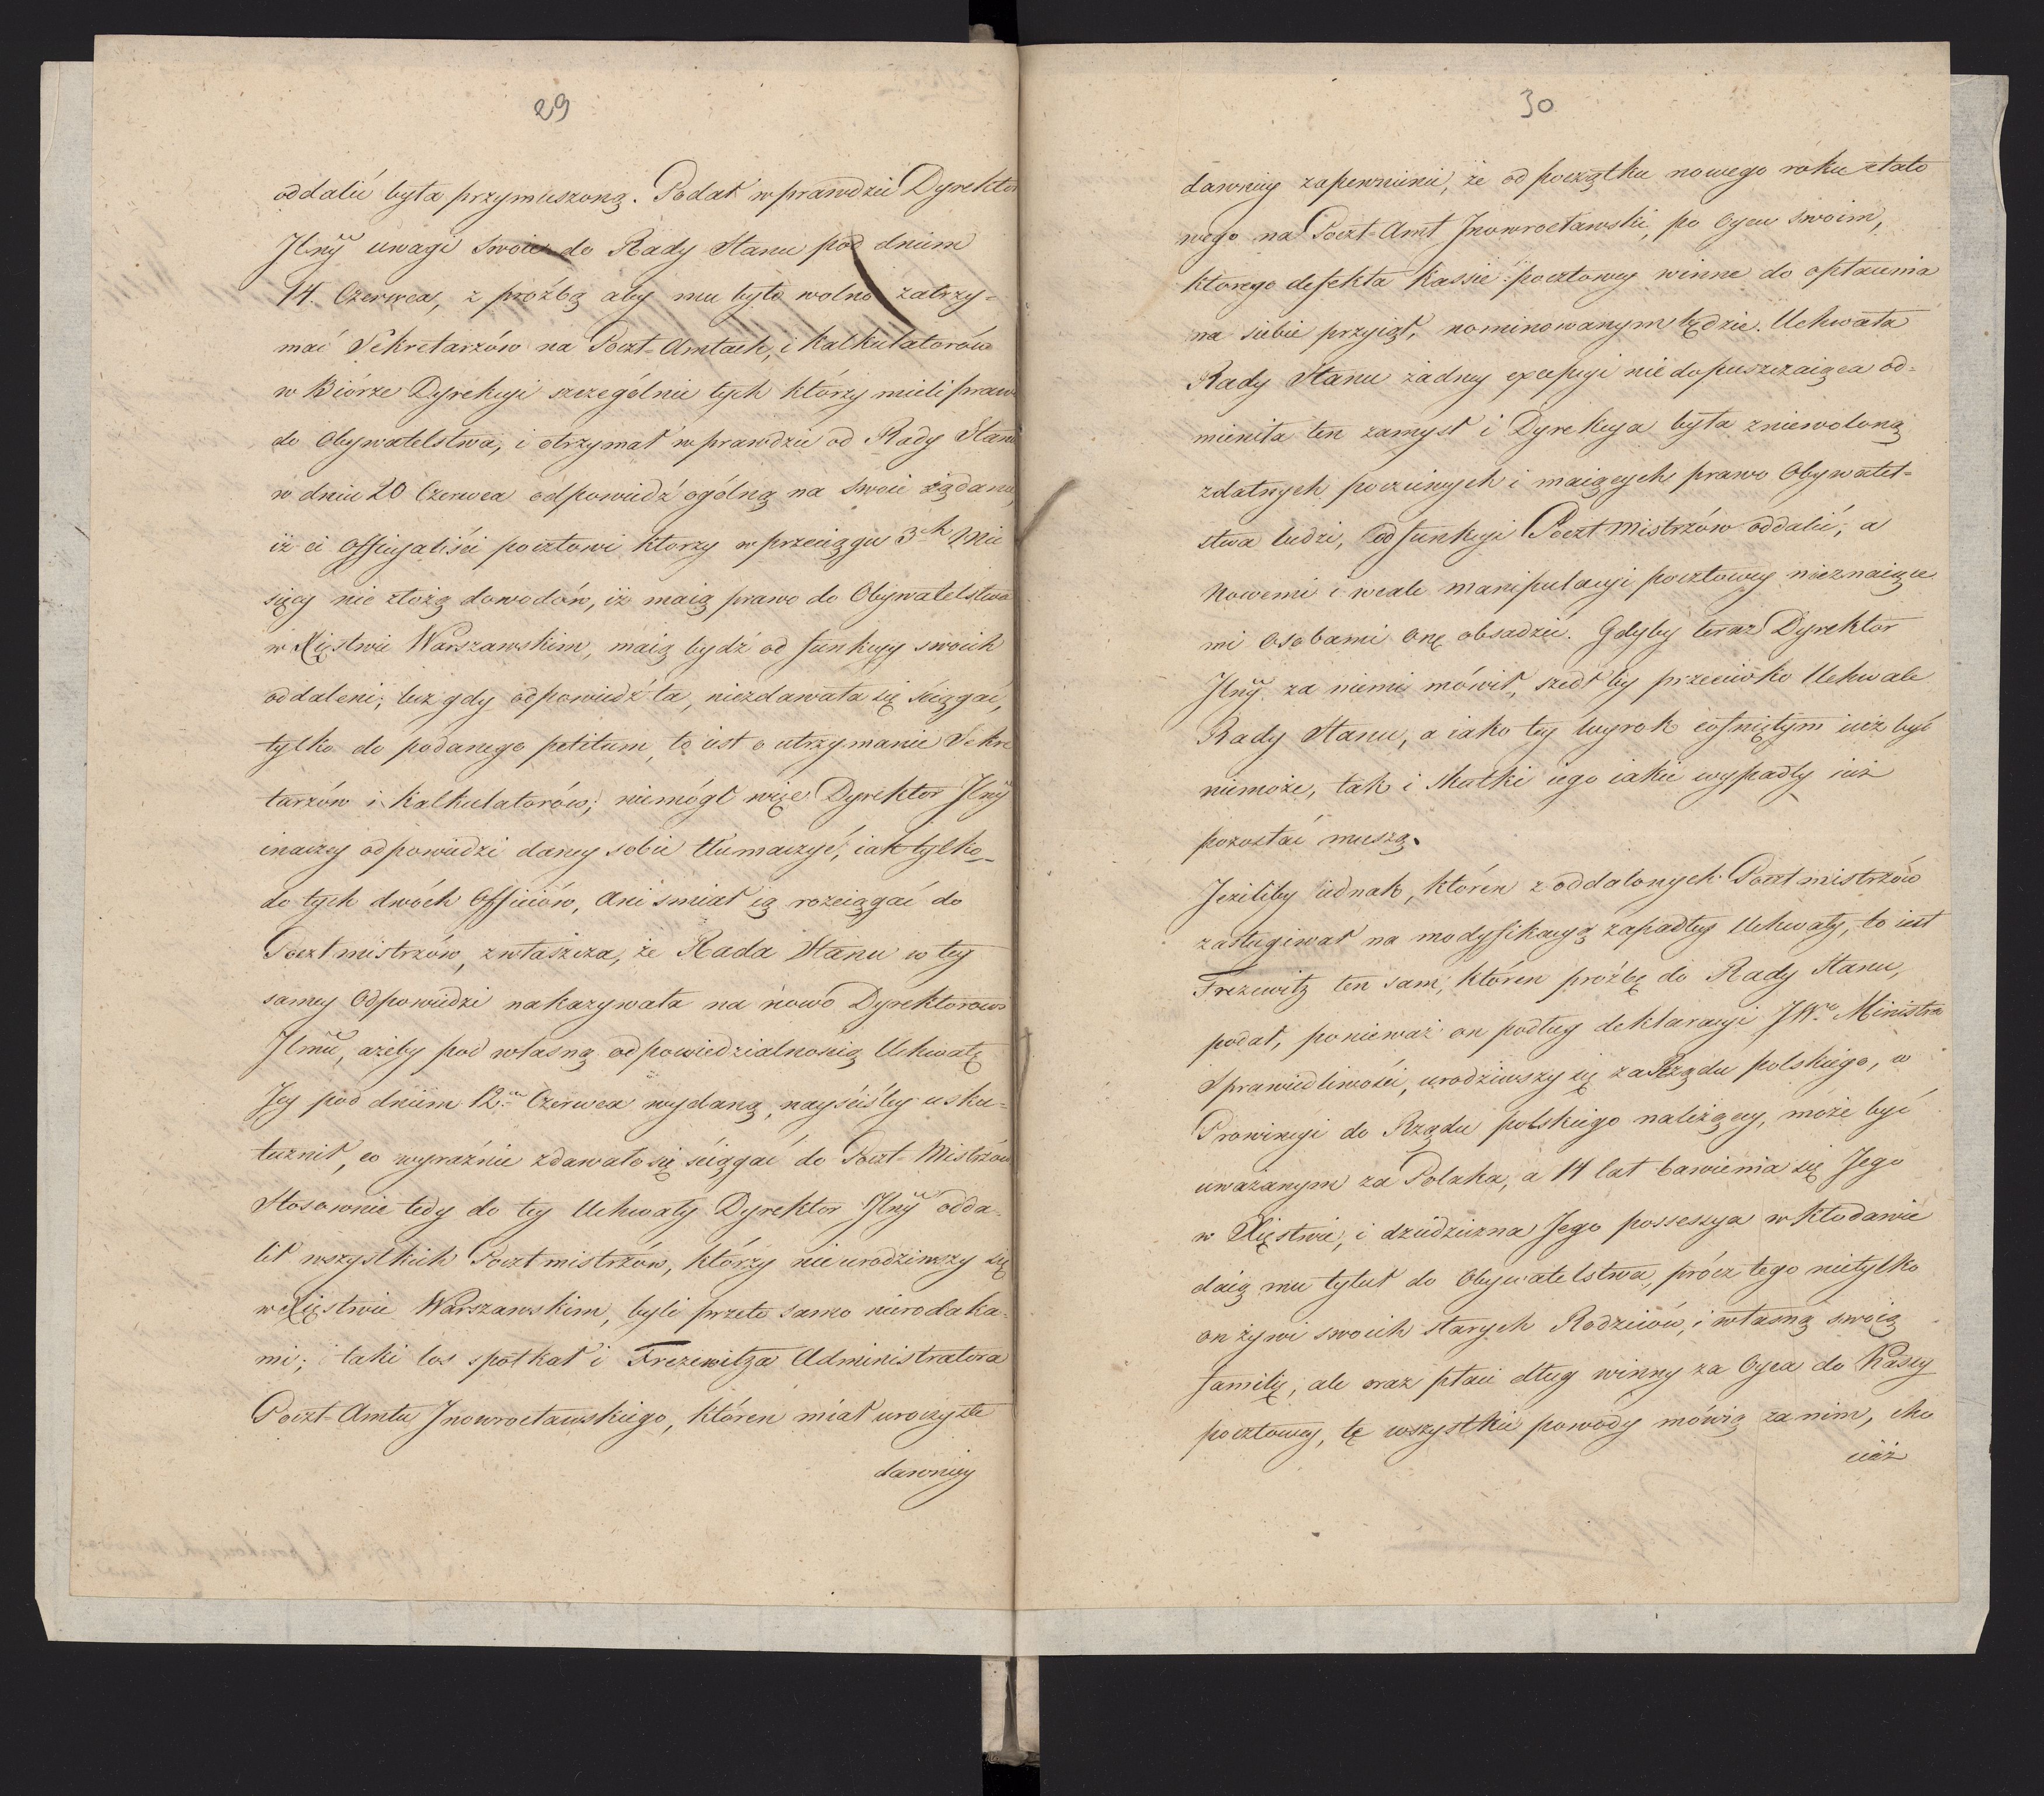 29
oddalić była przymuszoną. Podał wprawdzie Dyrektor
Jlny uwagi swoie do Rady Stanu pod dniem
14. Czerwca, z proźbą aby mu było wolno zatrzy=
mać Sekretarzów na Poczt=Amtach, i Kalkulatorów
w Biórze Dyrekcyi szczególnie tych którzy mieli praw
do Obywatelstwa, i otrzymał wprawdzie od Rady Stanu
w dniu 20 Czerwca odpowiedź ogólną na swoie żądanie,
iż ci Officyaliści pocztowi ktorzy w przeciągu 3ch Mie
sięcy nie złożą dowodów, iż maią prawo do Obywatelstwa
w Xięstwie Warszawskim, maią bydź od funkcyy swoich
oddaleni; lecz gdy odpowiedź ta, niezdawała się ściągać,
tylko do podanego petitum, to iest o utrzymanie Sekre
tarzów i Kalkulatorów; niemógł więc Dyrektor Jlny
inaczey odpowiedzi daney sobie tłumaczyć, iak tylko
do tych dwóch Officiów, Ani śmiał ią rozciągać do
Pocztmistrzów, zwłaszcza, że Rada Stanu w tey
samey Odpowiedzi nakazywała na nowo Dyrektorowi
Jlmu, ażeby pod własną odpowiedzialnosią Uchwałę
Jey pod dniem 12m Czerwca wydaną, nayściśley usku=
tecznił, co wyraźnie zdawało się ściągać do Poczt-Mistrzów
Stosownie tedy do tey Uchwały Dyrektor Jlny odda-
lił wszystkich Pocztmistrzów, którzy nieurodziwszy się
w Xięstwie Warszawskim, byli przeto samo nierodaka-
mi; i taki los spotkał i Frezewitza Administratora
Poczt-Amtu Jnowrocławskiego, któren miał uroczyste
dawniey
30
dawniey zapewnienie, że od początku nowego roku etato
wego na Poczt=Amt Jnowrocławski, po Oycu swoim,
ktorego defekta Kassie pocztowey winne do opłacenia
na siebie przyiął, nominowanym będzie. Uchwała
Rady Stanu żadney excepcyi nie dopuszczaiąca od=
mieniła ten zamysł i Dyrekcya była zniewoloną
zdatnych poczciwych i maiących prawo Obywatel=
stwa ludzi, od funkcyi Pocztmistrzów oddalić, a
Nowemi i wcale manipulacyi pocztowey nieznaiące
mi Osobami onę obsadzić. Gdyby teraz Dyrektor
Jlny za niemi mówił, szedł by przeciwko Uchwale
Rady Stanu, a iako tey wyrok cofniętym iuż być
niemoże, tak i skutki iego iakie wypadły iuż
pozostać muszą.
Jeżeliby iednak, któren z oddalonych Pocztmistrzów
zasługiwał na modyfikacyą zapadłey Uchwały, to iest
Frezewitz ten sam, któren proźbę do Rady Stanu,
podał, ponieważ on podług deklaracyi JWo Ministra
Sprawiedliwości, urodziwszy się za Rządu polskiego, w
Prowincyi do Rządu polskiego należącey, może być
uważanym za Polaka, a 14 lat bawienia się Jego
w Xięstwie, i dziedziczna Jego possessya w Kłodawie
daią mu tytuł do Obywatelstwa, prócz tego nietylko
on żywi swoich starych Rodziców, i własną swoią
familię, ale oraz płaci dług winny za Oyca do Kassy
pocztowey, te wszystkie powody mówią za nim, cho
ciaż